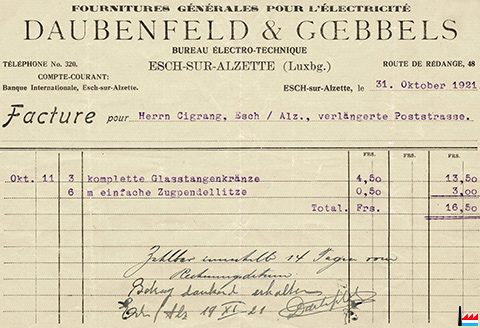 FOURNITURES GÉNÉRALES POUR L'ÉLECTRICITÉ
DAUBENFELD & GŒBBELS
BUREAU ÉLECTRO-TECHNIQUE
TÉLÉPHONE No. 320. ESCH-SUR-ALZETTE (Luxbg.) ROUTE DE RÉDANGE, 48
COMPTE-COURANT:
Banque Internationale, Esch-sur-Alzette. ESCH-sur-Alzette, le 31. Oktober 1921.
Facture pour Herrn Cigrang, Esch / Alz., verlängerte Poststrasse.
FRS. FRS. FRS.
Okt. 11 3 komplette Glasstangenkränze 4,50 13,50
6 m einfache Zugpendellitze 0,50 3,00
Total. Frs. 16,50
Zahlbar innerhalb 14 Tagen vom
Rechnungsdatum.
Betrag dankend erhalten
Esch / Alz 19 XI 21